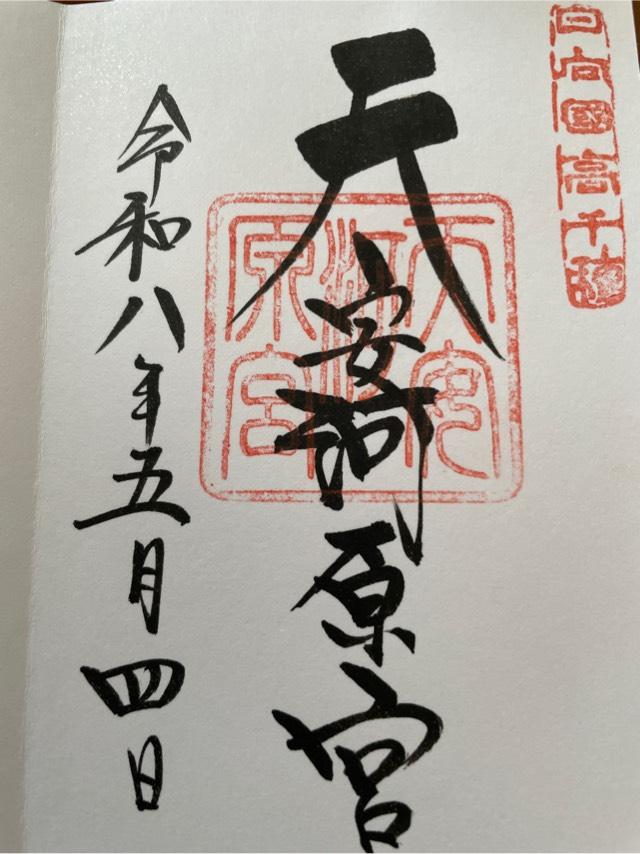 日向國高千穂
天安河原宮
天安河原宮
令和八年五月四日